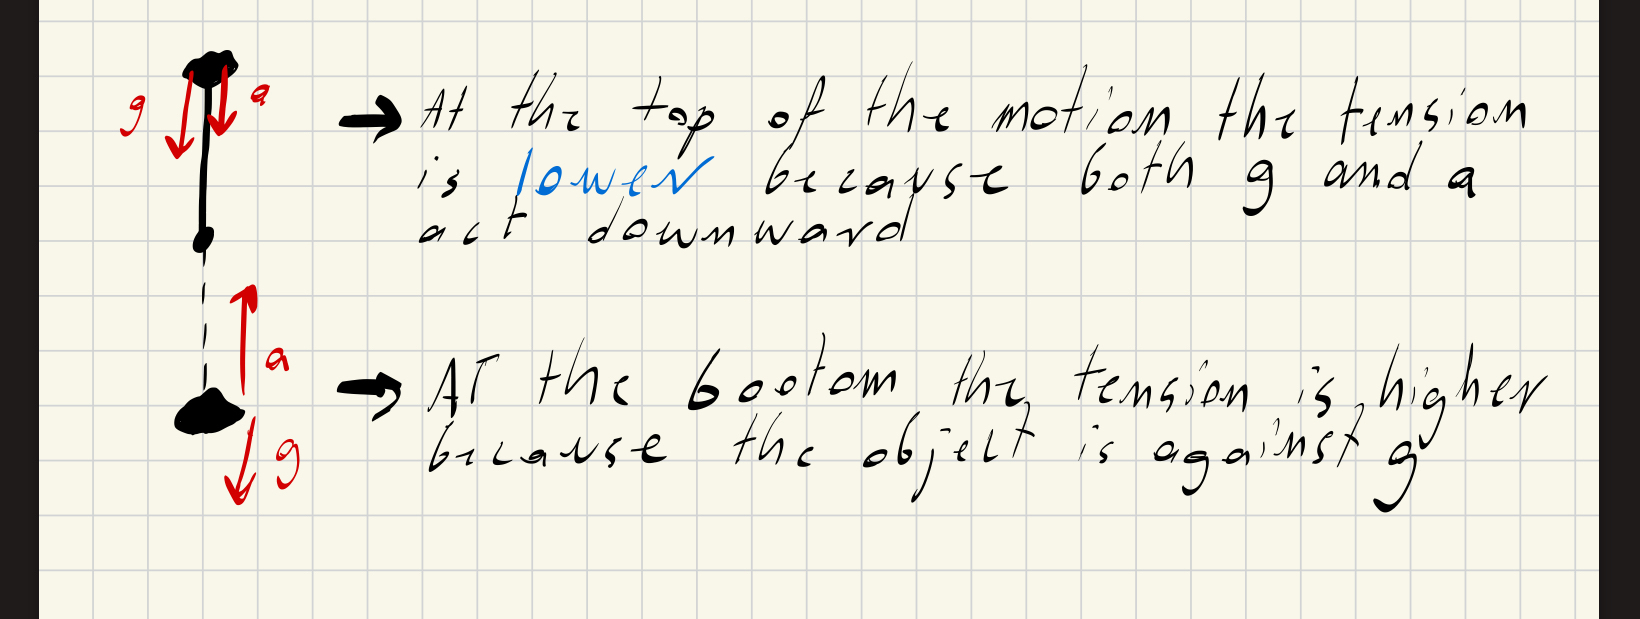 g
a
→ At the top of the motion the tension
is lower because both g and a
act downward
a
→ AT the bootom the tension is higher
because the object is against g
g